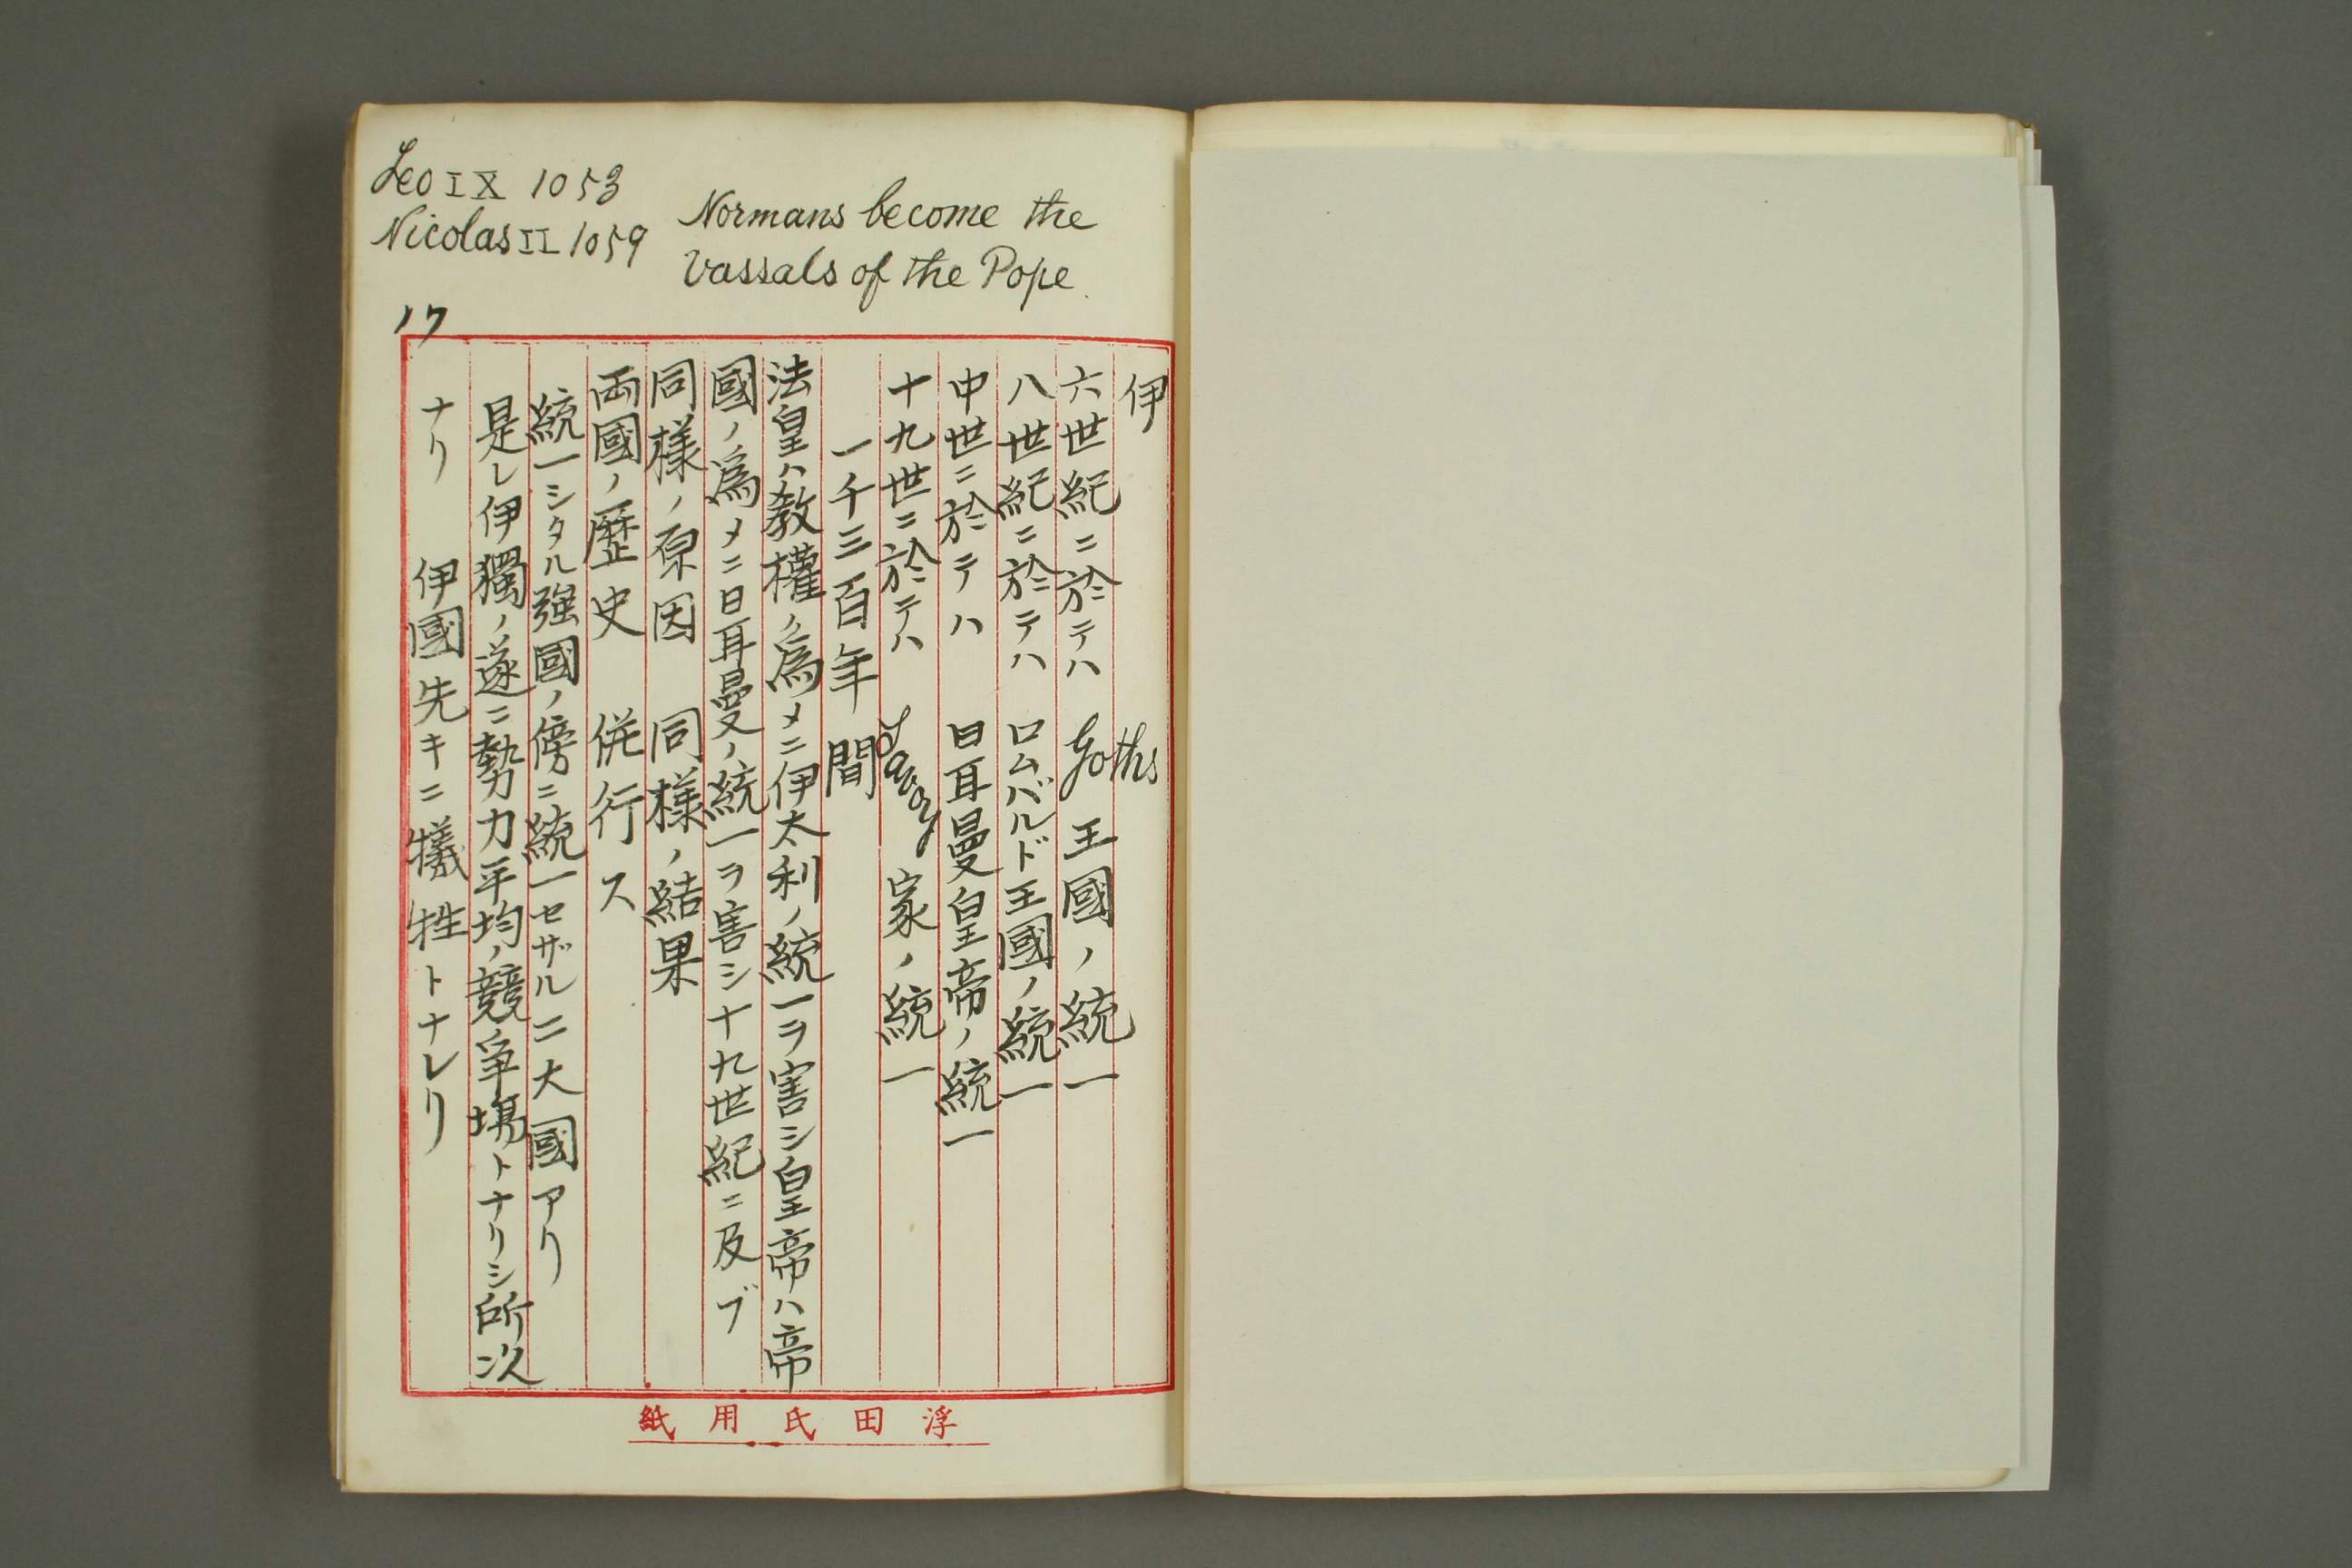 Leo IX 1053
Nicolas II 1059
Normans become the
Vassals of the Pope
17
伊
六世紀ニ於テハ Goths 王國ノ統一
八世紀ニ於テハ ロムバルド王國ノ統一
中世ニ於テハ 日耳曼皇帝ノ統一
十九世ニ於テハ Savoy 家ノ統一
一千三百年間
法皇ハ教權ノ爲メニ伊太利ノ統一ヲ害シ皇帝ハ帝
國ノ爲メニ日耳曼ノ統一ヲ害シ十九世紀ニ及ブ
同樣ノ原因 同樣ノ結果
両國ノ歴史 併行ス
統一シタル強國ノ傍ニ統一セザル二大國アリ
是レ伊獨ノ遂ニ勢力平均ノ競爭塲トナリシ所以
ナリ 伊國先キニ犠牲トナレリ
浮田氏用紙